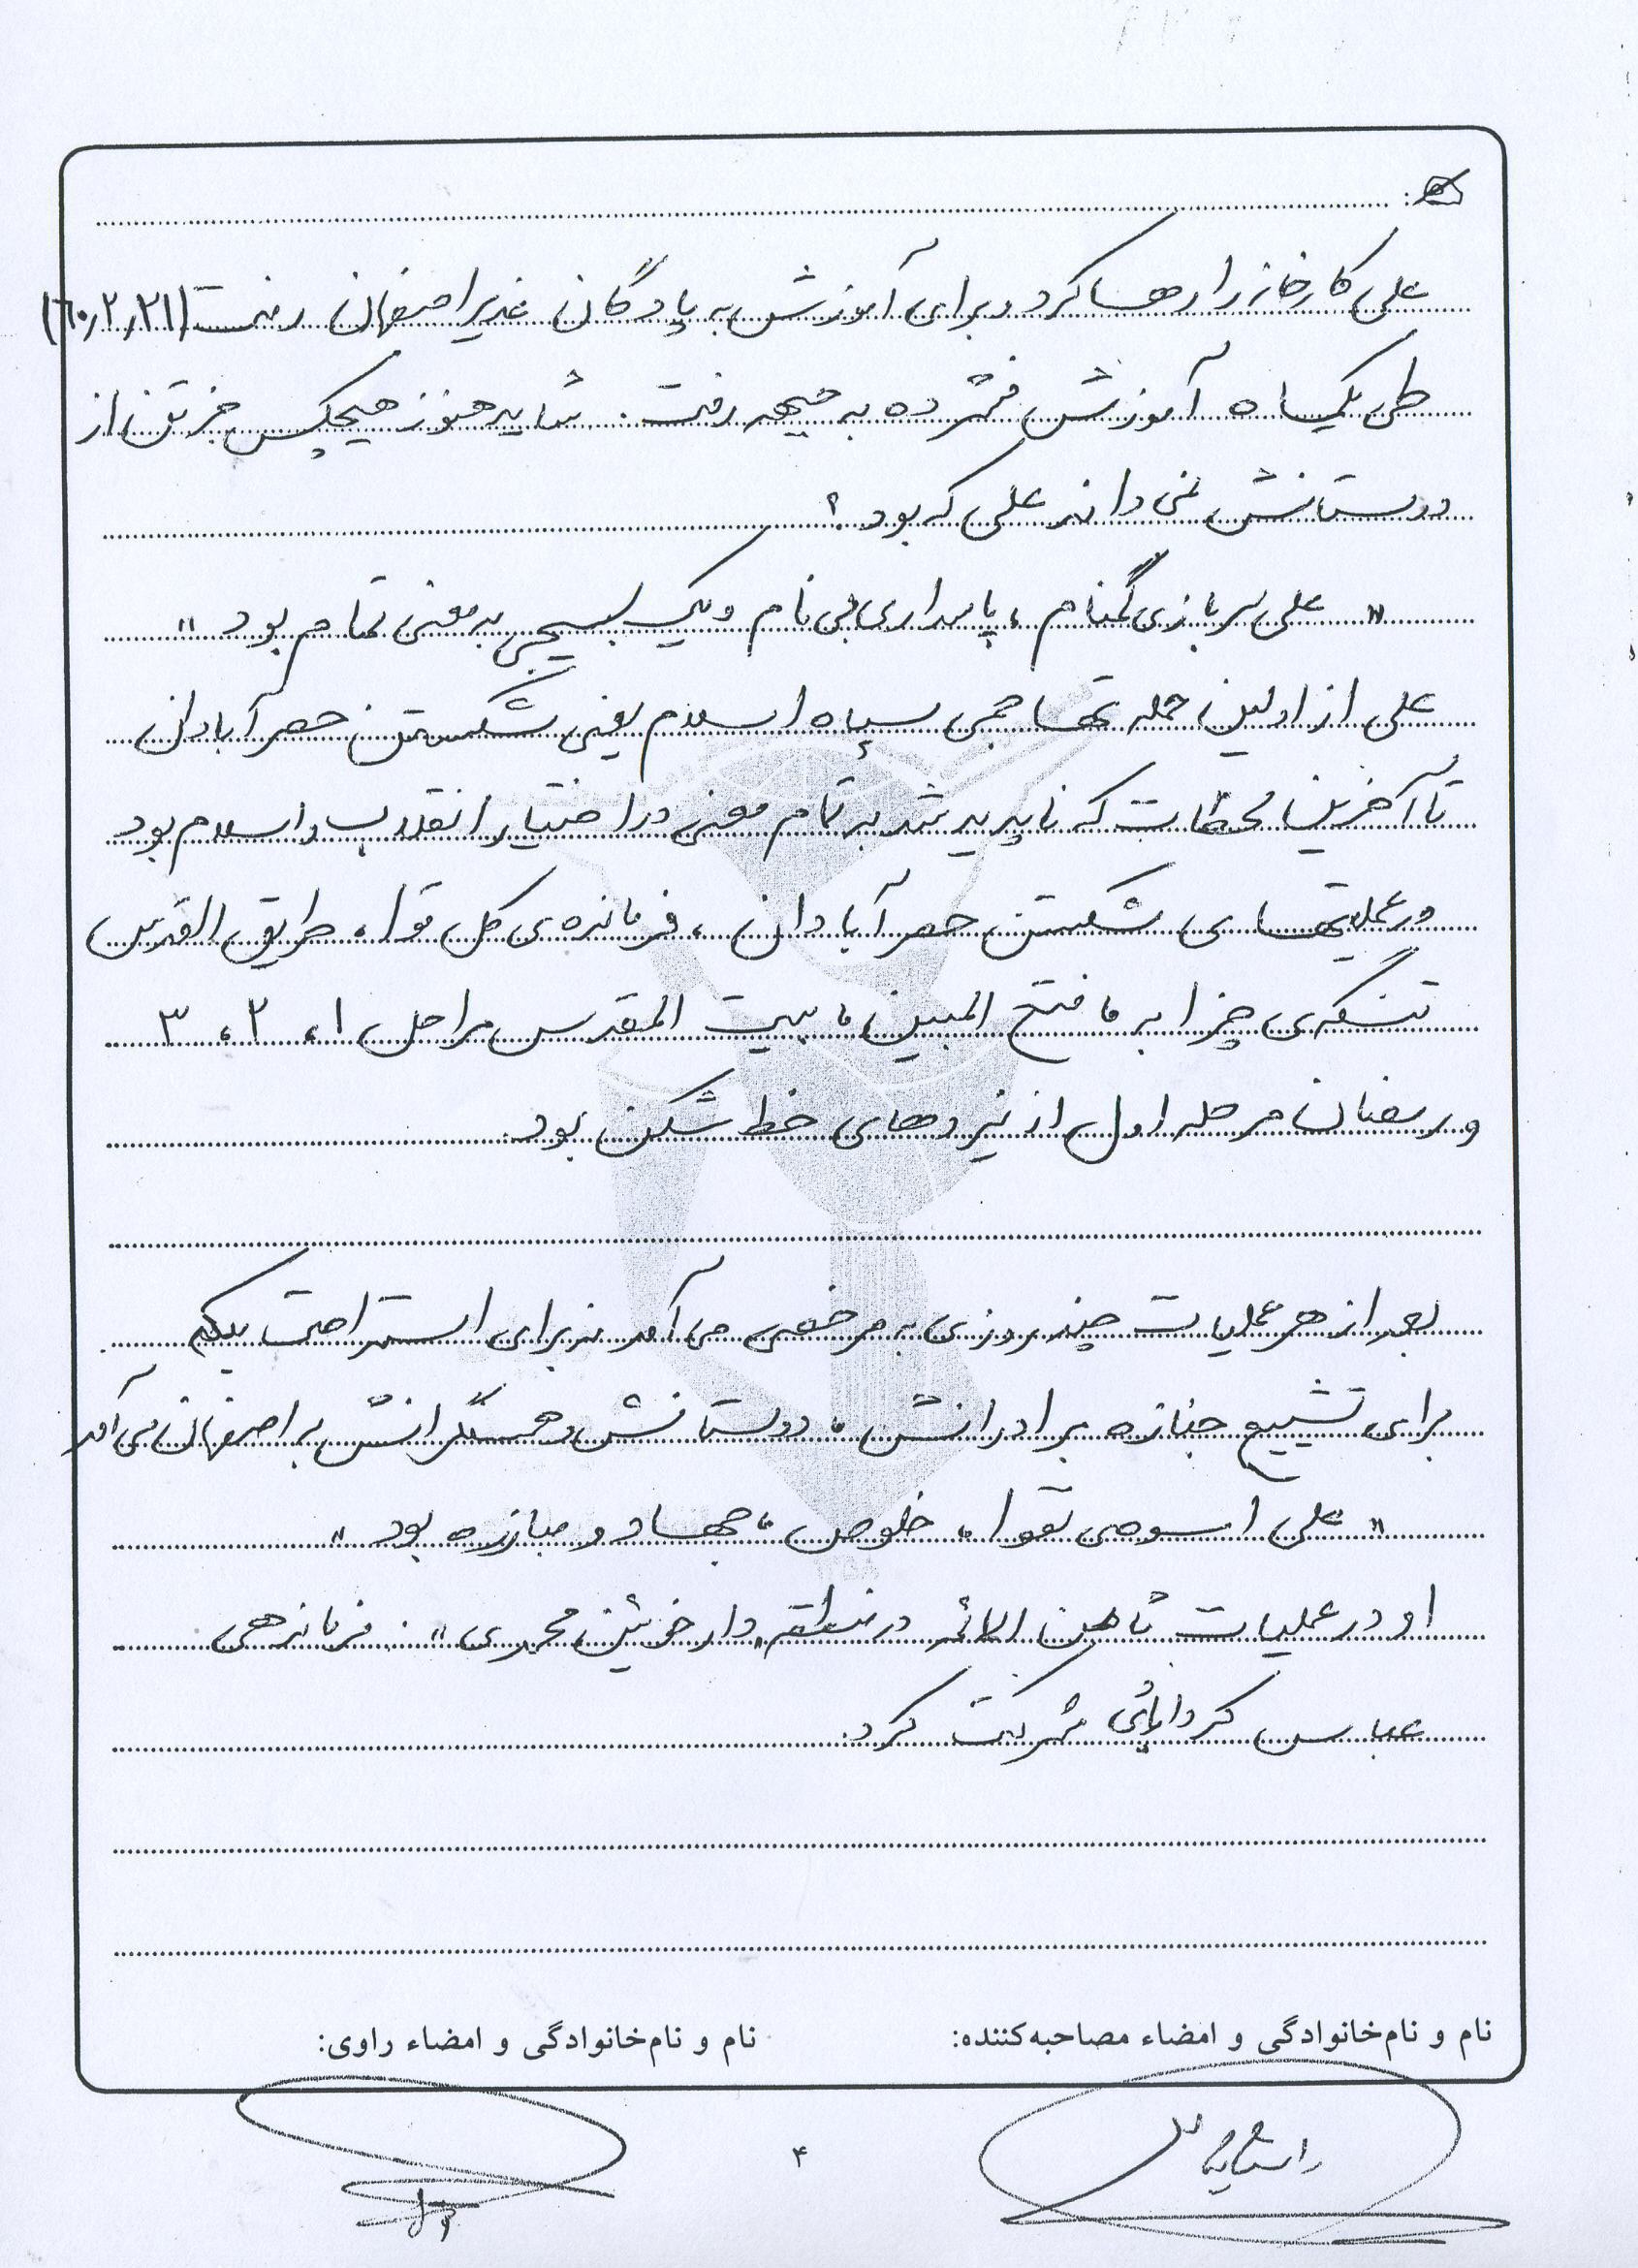 علی کارخانه را رها کرد و برای آموزش به پادگان غدیر اصفهان رفت (۶۰٫۲٫۲۱)
طی یکماه آموزش فشرده به جبهه رفت. شاید هنوز هیچکس جز تنی از
دوستانش نمی داند علی که بود؟
" علی سربازی گمنام ، پاسداری بی نام و یک بسیجی به معنی تمام بود "
علی از اولین حمله تهاجمی سپاه اسلام یعنی شکستن حصر آبادان
تا آخرین لحظات که ناپدید شد به تمام معنی در اختیار انقلاب و اسلام بود
در عملیتهای شکستن حصر آبادان ، فرمانده ی کل قوا ، طریق القدس
تنگه ی چزابه ، فتح المبین ، بیت المقدس مراحل ۱ ، ۲ ، ۳
و رمضان مرحله اول از نیروهای خط شکن بود.
بعد از هر عملیات چند روزی به مرخصی می آمد نه برای استراحت بلکه
برای تشییع جنازه برادرانش ، دوستانش و همسنگرانش به اصفهان می آمد
" علی اسوه ی تقوا ، خلوص ، جهاد و مبارزه بود "
او در عملیات ثامن الائمه در منطقه " دارخوئین محمدی " . فرماندهی
عباس کردآبادی شرکت کرد.
نام و نام‌خانوادگی و امضاء مصاحبه‌کننده:
نام و نام‌خانوادگی و امضاء راوی:
۴